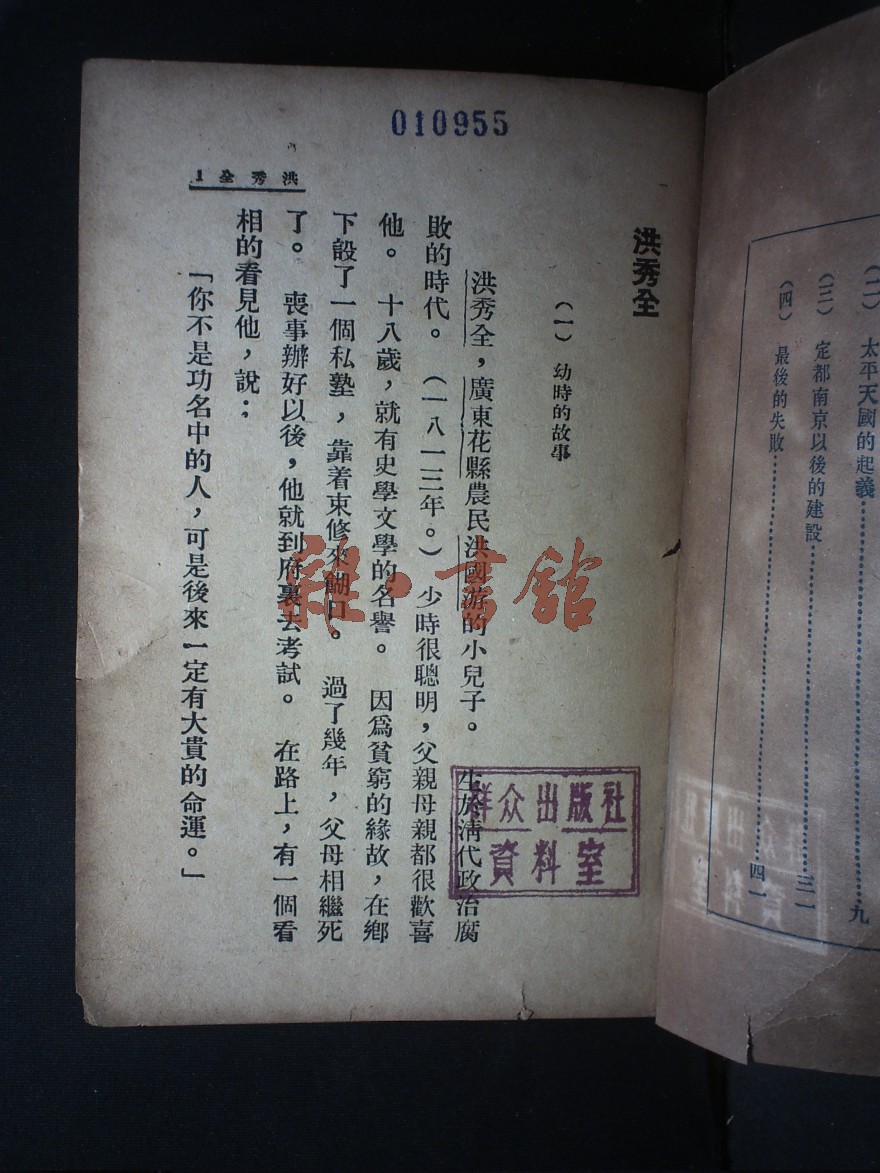 (二) 太平天國的起義⋯⋯九
(三) 定都南京以後的建設⋯⋯三一
(四) 最後的失敗⋯⋯四一
010955
洪秀全 1
洪秀全
(一) 幼時的故事
洪秀全，廣東花縣農民洪國游的小兒子。 生於清代政治腐
敗的時代。 (一八一三年。) 少時很聰明，父親母親都很歡喜
他。 十八歲，就有史學文學的名譽。 因爲貧窮的緣故，在鄉
下設了一個私塾，靠着束修來餬口。 過了幾年，父母相繼死
了。 喪事辦好以後，他就到府裏去考試。 在路上，有一個看
相的看見他，說；
「你不是功名中的人，可是後來一定有大貴的命運。」
群众出版社
資料室
雜·書館